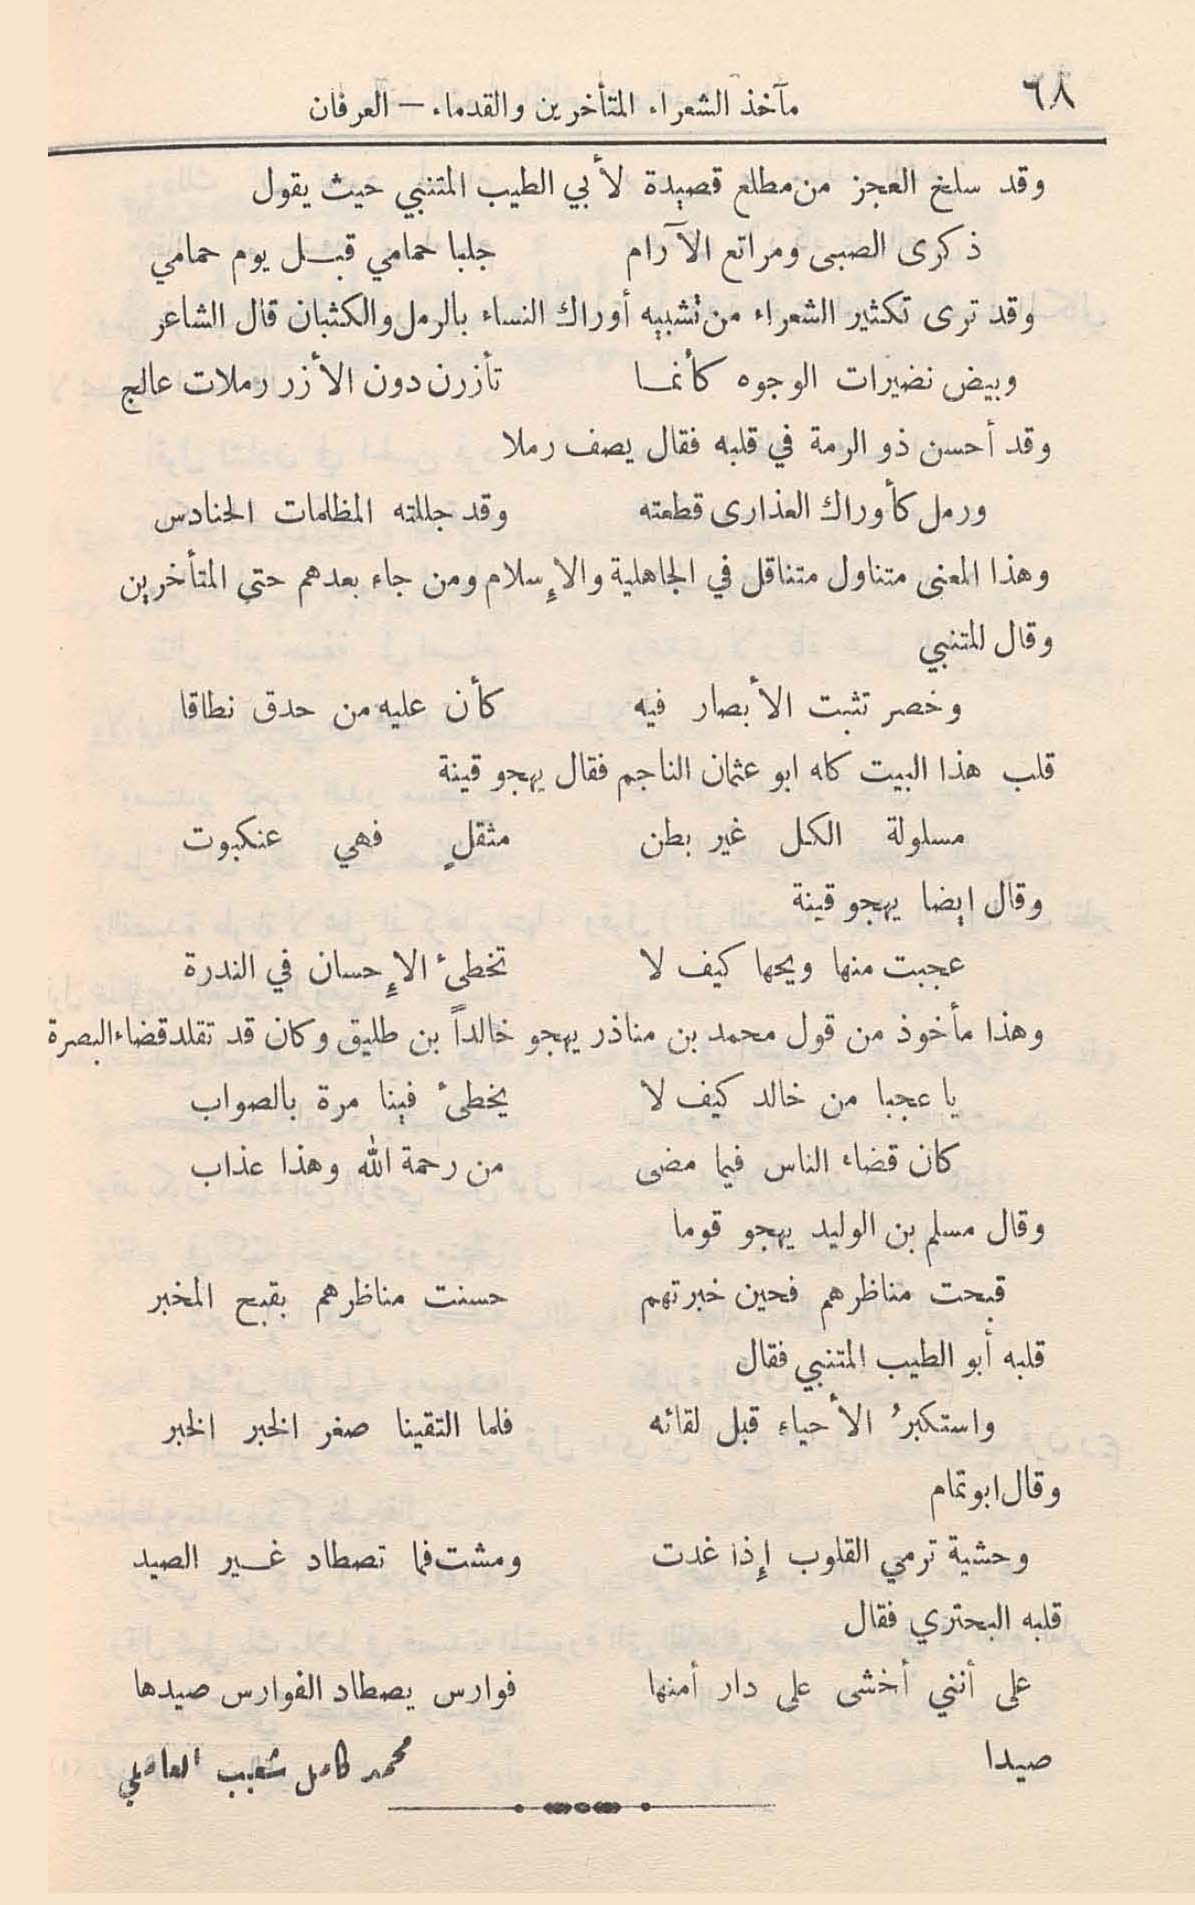 ٦٨
مآخذ الشعراء المتأخرين والقدماء — العرفان
وقد سلخ العجز من مطلع قصيدة لأبي الطيب المتنبي حيث يقول
ذكرى الصبى ومراتع الآرام جلبا حمامي قبل يوم حمامي
وقد ترى تكثير الشعراء من تشبيه أوراك النساء بالرمل والكثبان قال الشاعر
وبيض نضيرات الوجوه كأنما تأزرن دون الأزر رملات عالج
وقد أحسن ذو الرمة في قلبه فقال يصف رملا
ورمل كأوراك العذارى قطعته وقد جللته المظلمات الحنادس
وهذا المعنى متناول متناقل في الجاهلية والإسلام ومن جاء بعدهم حتى المتأخرين
وقال المتنبي
وخصر تثبت الأبصار فيه كأن عليه من حدق نطاقا
قلب هذا البيت كله ابو عثمان الناجم فقال يهجو قينة
مسلولة الكل غير بطن مثقلٍ فهي عنكبوت
وقال ايضا يهجو قينة
عجبت منها ويحها كيف لا تخطئ الإحسان في الندرة
وهذا مأخوذ من قول محمد بن مناذر يهجو خالداً بن طليق وكان قد تقلد قضاء البصرة
يا عجبا من خالد كيف لا يخطئ فينا مرة بالصواب
كان قضاء الناس فيما مضى من رحمة الله وهذا عذاب
وقال مسلم بن الوليد يهجو قوما
قبحت مناظرهم فحين خبرتهم حسنت مناظرهم بقبح المخبر
قلبه أبو الطيب المتنبي فقال
واستكبرُ الأحياء قبل لقائه فلما التقينا صغر الخبر الخبر
وقال ابو تمام
وحشية ترمي القلوب إذا غدت ومشت فما تصطاد غير الصيد
قلبه البحتري فقال
على أنني أخشى على دار أمنها فوارس يصطاد الفوارس صيدها
صيدا محمد كامل شعيب العاملي